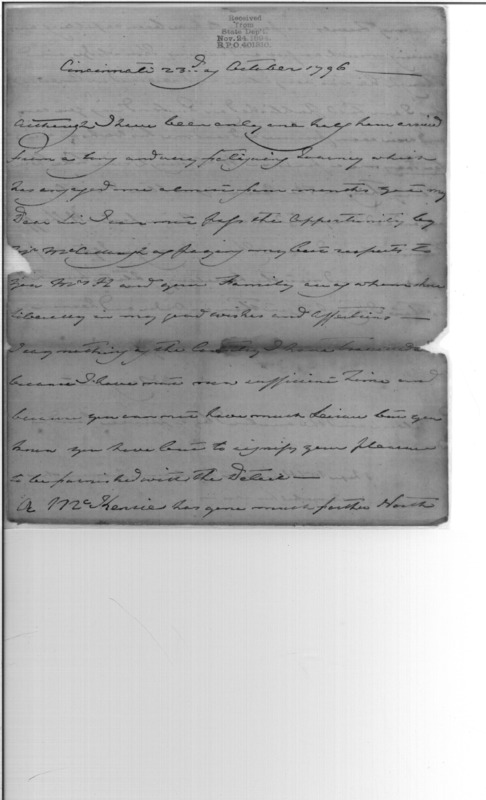 Received
from
State Dept.
Nov. 24, 1894
R.P.O. 401910.
Cincinnati 23d. of October 1796
Although I have been only one half hour arrived
from a long and very fatiguing Journey which
has engaged me almost four months yet my
Dear Sir I can not pass the opportunity by
Mr. of paying my best respects to
You Mrs. and your Family any of whom share
in my good wishes and affections
I say nothing of the Country I have
because I have not now sufficient time and
because you can not have much Leisure but you
know you have but to signify your pleasure
to be furnished with the Detail
A McKenzie has gone much farther North